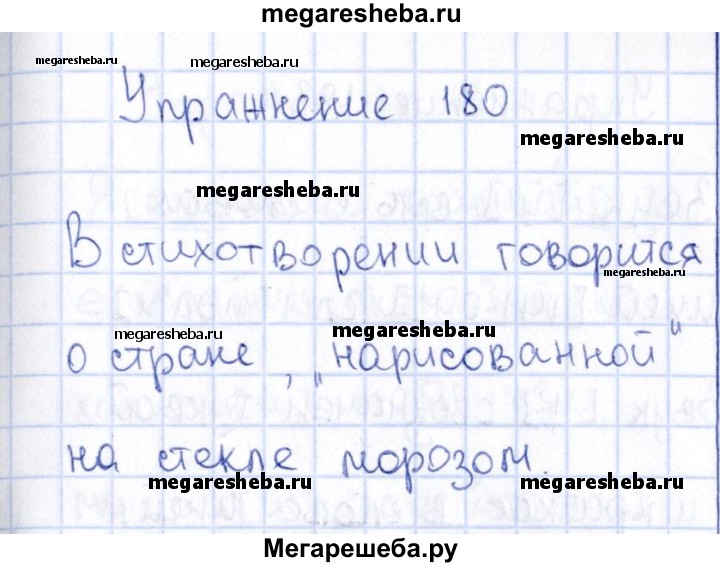 megaresheba.ru
megaresheba.ru megaresheba.ru
Упражнение 180
megaresheba.ru
megaresheba.ru
В стихотворении говорится
megaresheba.ru
megaresheba.ru megaresheba.ru
о стране, „нарисованной"
на стекле морозом.
megaresheba.ru megaresheba.ru megaresheba.ru
Мегарешеба.ру